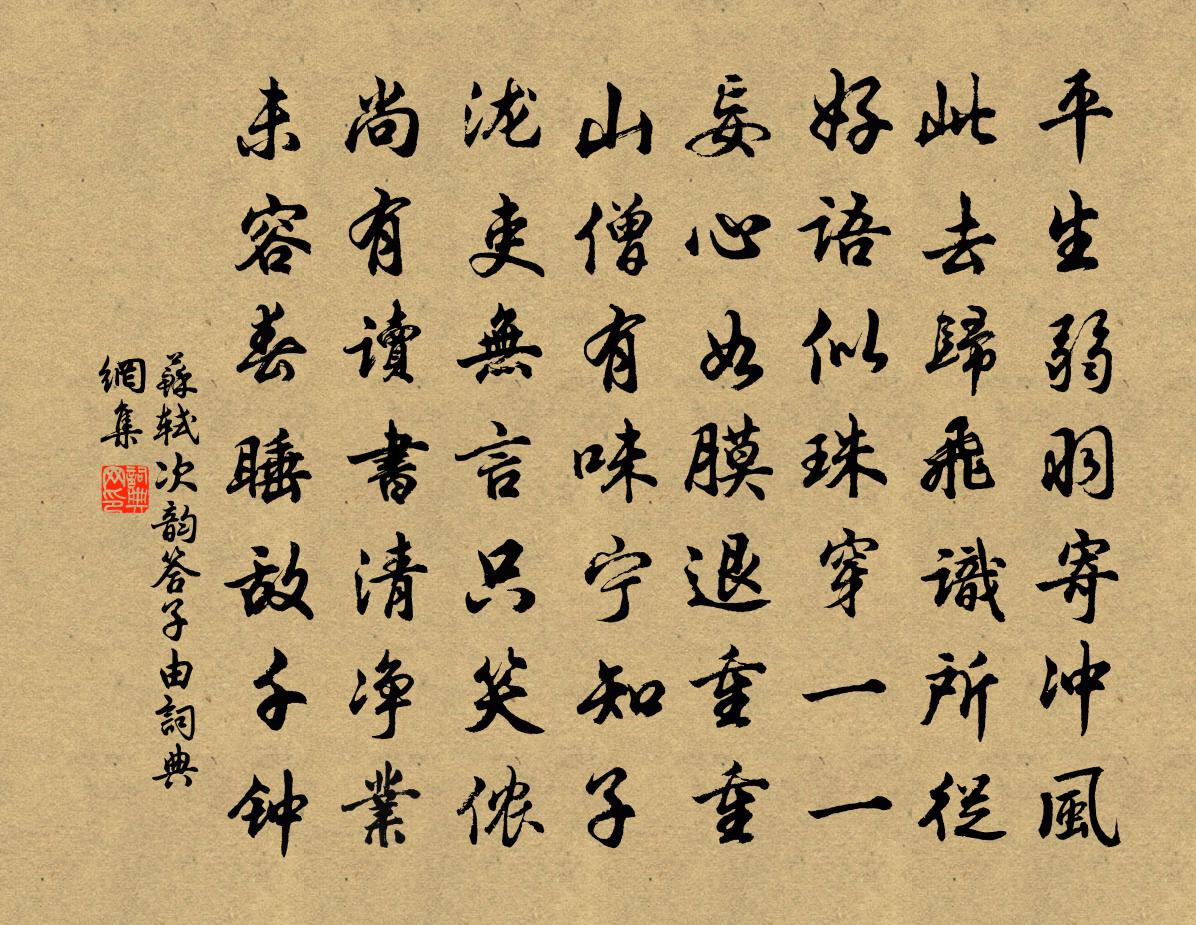 平生弱羽寄冲風
此去歸飛識所從
好語似珠穿一一
妄心如膜退重重
山僧有味宁知子
泷吏無言只笑侬
尚有讀書清净業
未容春睡敌千钟
蘇軾次韵答子由詞典
網集
詞典
网印